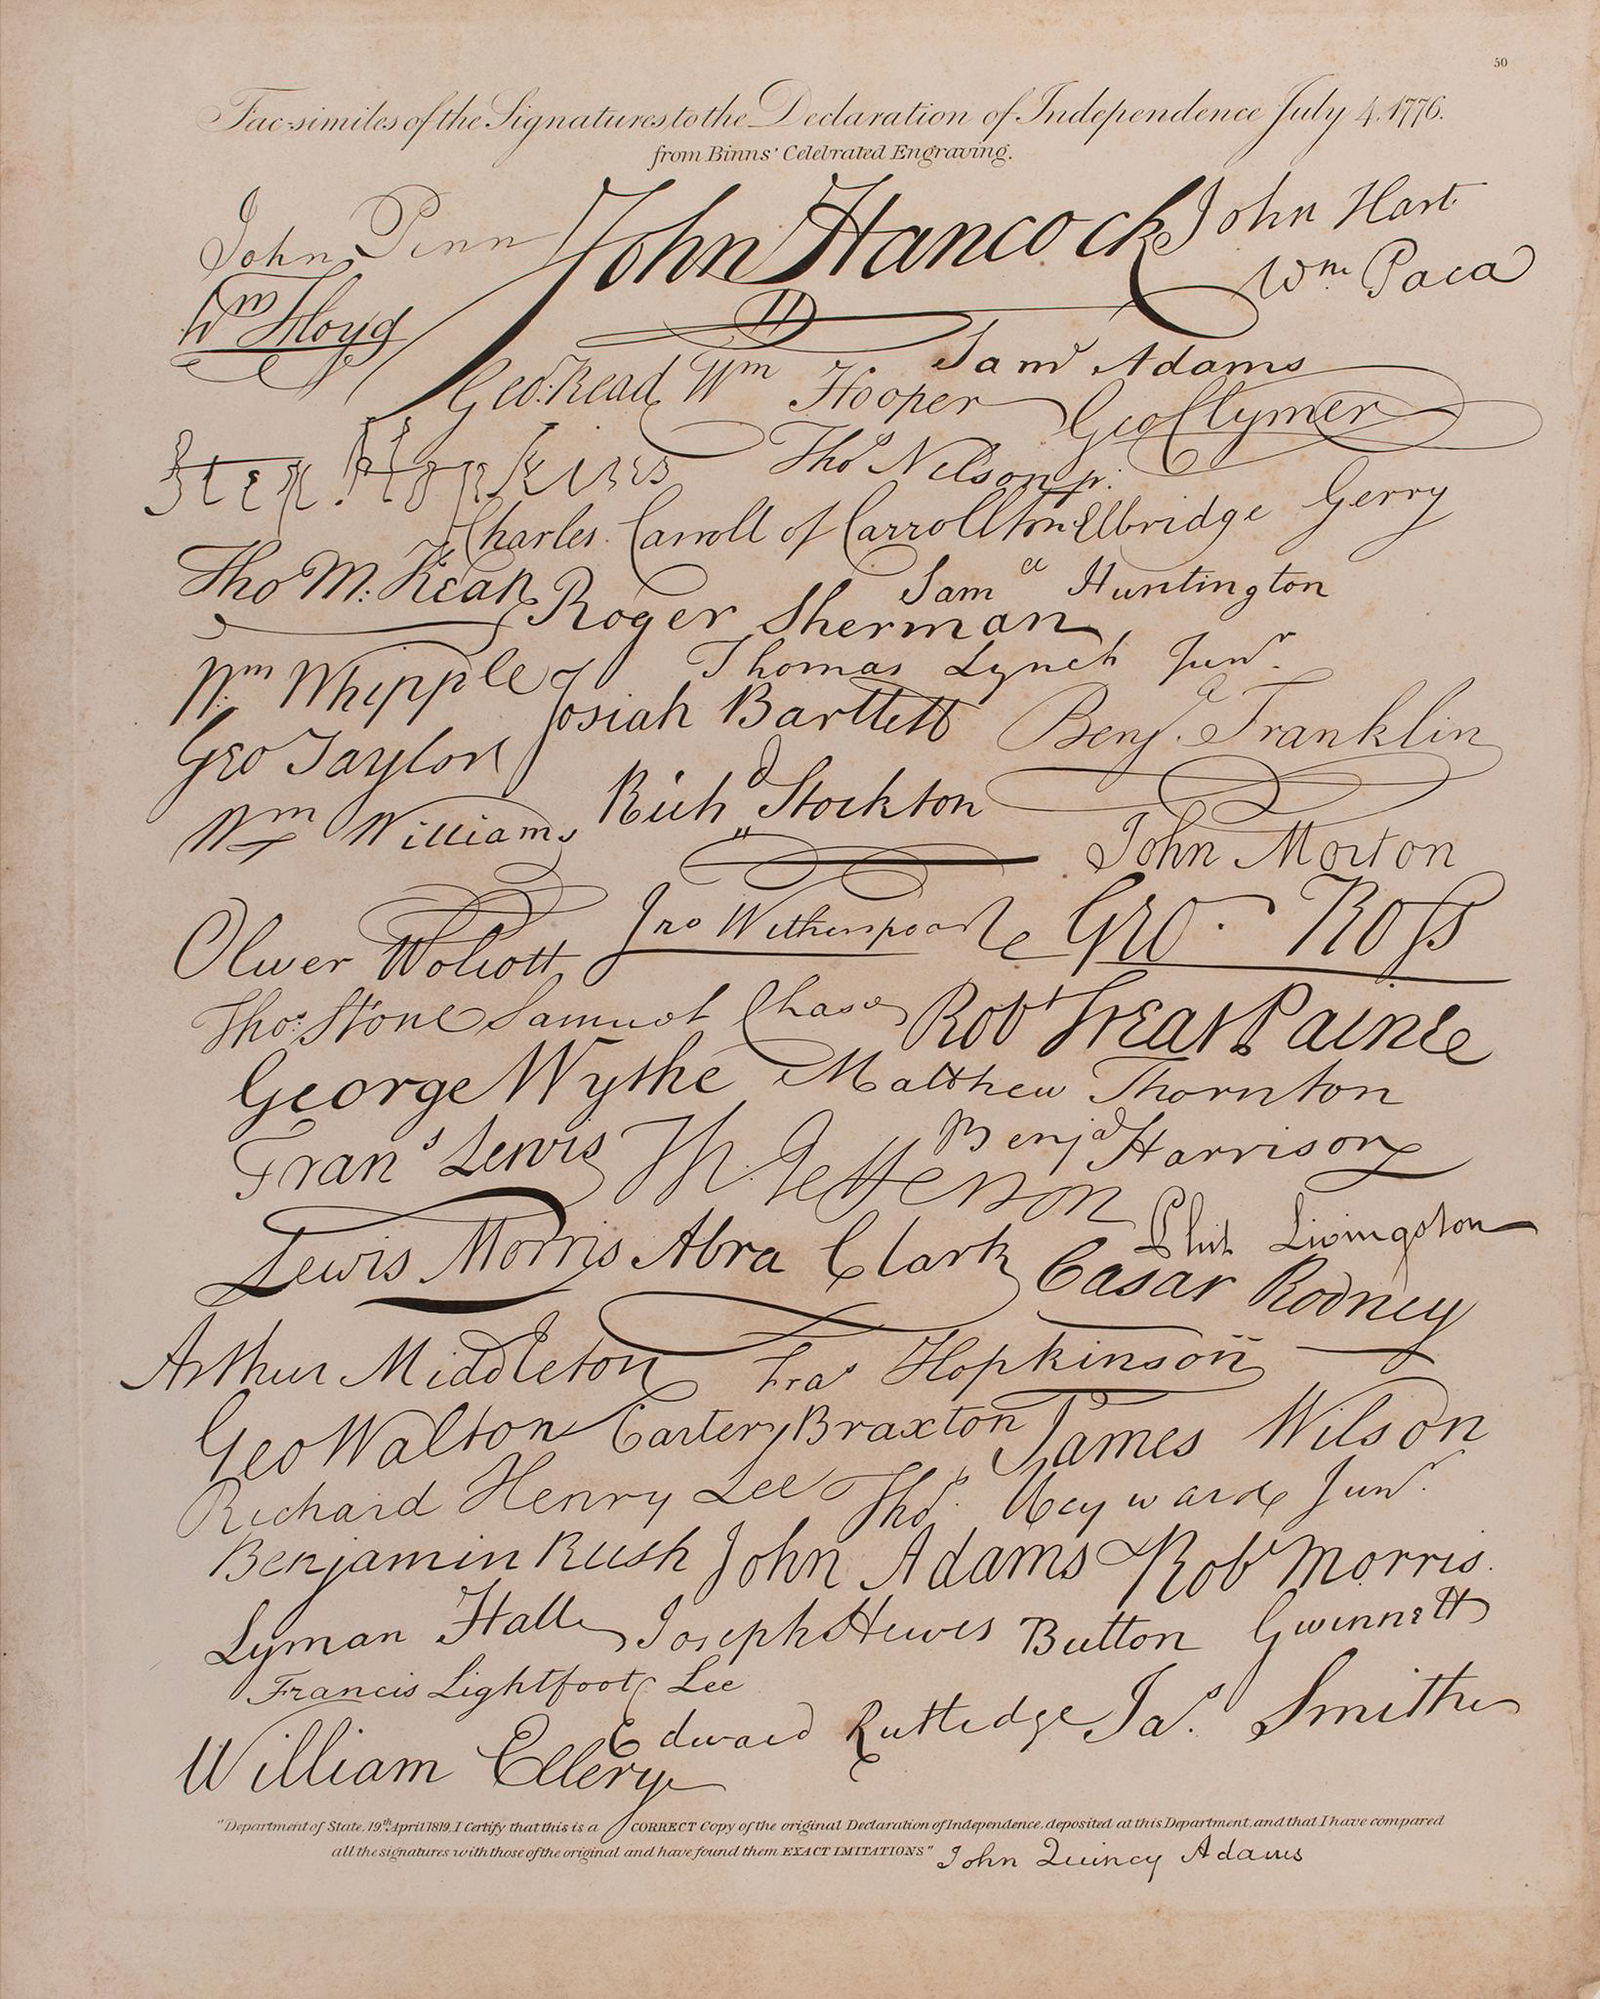 50
Fac-similes of the Signatures to the Declaration of Independence July 4. 1776.
from Binns' Celebrated Engraving.
John Penn John Hancock John Hart
Wm Floyd Wm Paca
Saml Adams
Geo. Read Wm Hooper Geo Clymer
Step. Hopkins Thos Nelson jr.
Charles Carroll of Carrollton Elbridge Gerry
Tho M: Kean Roger Sherman Samel Huntington
Wm Whipple Thomas Lynch Junr.
Josiah Bartlett Benja. Franklin
Geo Taylor
Wm Williams Richd Stockton John Morton
Oliver Wolcott Jno Witherspoon Geo. Ross
Thos. Stone Samuel Chase Robt Treat Paine
George Wythe Matthew Thornton
Frans Lewis Th. Jefferson Benja Harrison
Lewis Morris Abra Clark Phil. Livingston
Cæsar Rodney
Arthur Middleton Fras Hopkinson
Geo Walton Carter Braxton James Wilson
Richard Henry Lee Thos. Heyward Junr.
Benjamin Rush John Adams Robt Morris.
Lyman Hall Joseph Hewes Button Gwinnett
Francis Lightfoot Lee
Edward Rutledge Jas. Smith
William Ellery
"Department of State, 19th April 1819. I Certify that this is a CORRECT Copy of the original Declaration of Independence, deposited at this Department, and that I have compared
all the signatures with those of the original and have found them EXACT IMITATIONS" John Quincy Adams